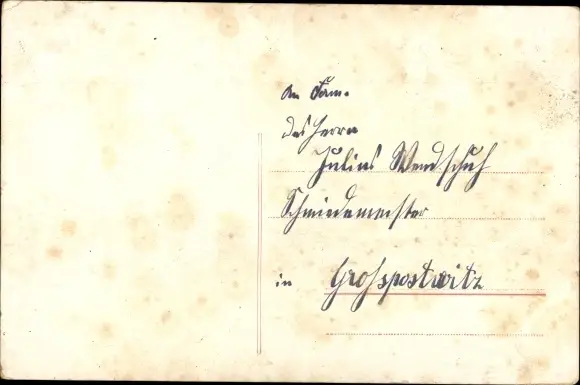 An Fam.
des Herrn
Julius Wendschuh
Schmiedemeister
in Großpostwitz